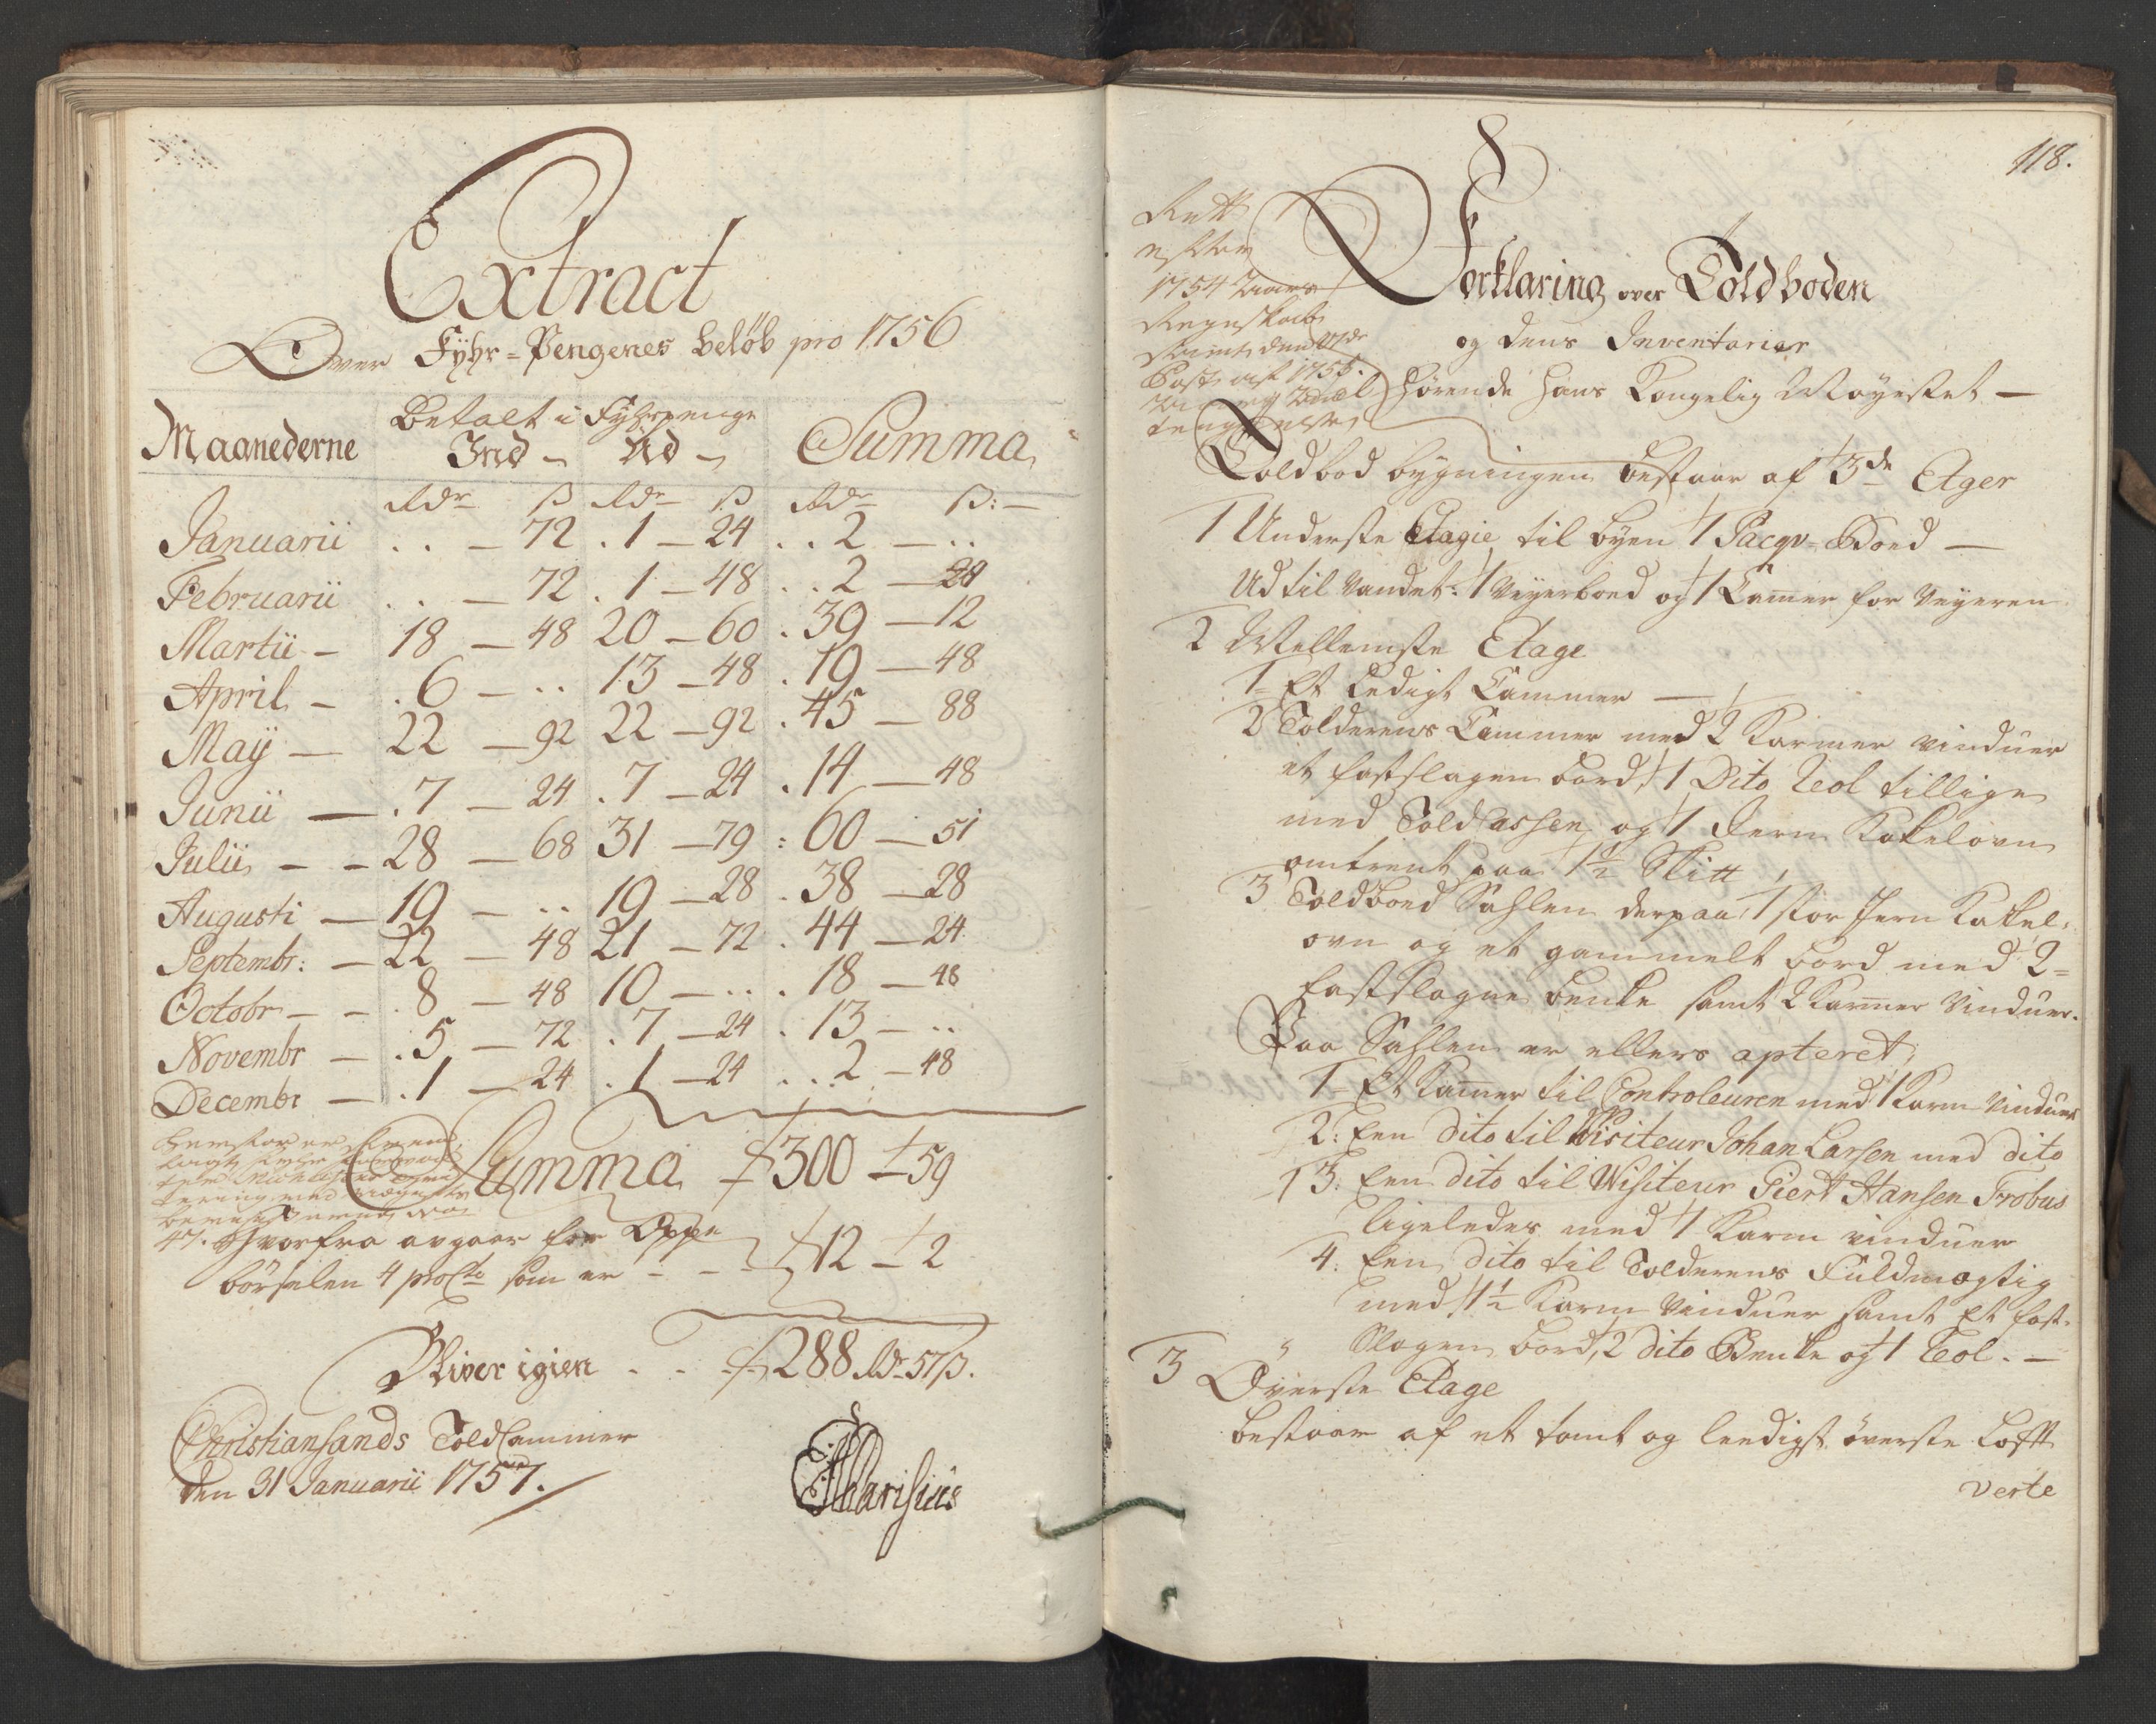 Extract
Over Fyhr=Pengenes beløb pro 1756
Maanederne Betalt i Fyhrpenge Summa
Ind - Ud -
Rdr ß Rdr ß Rdr ß:-
Januarii . . - 72 . 1 - 24 . . 2 - . .
Februarii . . - 72 . 1 - 48 . . 2 -
Martii - 18 - 48 20 - 60 . 39 - 12
April - . 6 - . . 13 - 48 . 19 - 48
Maÿ - 22 - 92 22 - 92 . 45 - 88
Junii - . 7 - 24 . 7 - 24 . 14 - 48
Julii - - 28 - 68 31 - 79 : 60 - 51
Augusti - 19 - . . 19 - 28 . 38 - 28
Septembr: - 22 - 48 21 - 72 . 44 - 24
Octobr - - . 8 - 48 10 - . . . 18 - 48
Novembr - . 5 - 72 . 7 - 24 . 13 - . .
Decembr - . 1 - 24 . 1 - 24 . . 2 - 48
Summa 300 - 59
47.
Hvorfra avgaar for Oppe
børselen 4 proCto som er - - - 12 - 2
Bliver igien . . . 288 Rdr 57ß.
Christiansands ToldCammer
den 31 Januarii 1757.
118.
Rett
efter
1754 Aars
Regnskab
Forklaring over Toldboden
og dens Inventarier
hørende Hans Kongelig Mayestet -
Toldbod bygningen bestaar af 3de Etager
1 Underste Etagie til byen 1 Pacqv-Boed -
Ud til Vandet: 1 Veyerboed og 1 Camer for Veyeren
2 Mellemste Etage
1= Et Ledigt Cammer -
2 Tolderens Cammer med 2 Karmer vinduer
et fastslagen bord, 1 Dito Reol tillige
med ToldCassen og 1 Jern Kakelovn
omtrent paa 1½
3 Toldboed Sahlen derpaa 1 stor Jern Kakel-
ovn og et gammelt bord med 2=
fastslagne benke samt 2 Karmer Vinduer.
Paa Sahlen er ellers apteret,
1= Et Kamer til Controleuren med 1 Karm Vinduer
2: Een dito til Visiteur Johan Larsen med dito
3: Een dito til Visiteur Piert Hansen Trobus
ligeledes med 1 Karm vinduer
4: Een dito til Tolderens Fuldmegtig
med 1½ Karm Vinduer samt Et fast-
Slagen bord, 2 dito Benke og 1 Reol. -
3 Øverste Etage
bestaar af et tomt og leedigt øverste Loft
verte